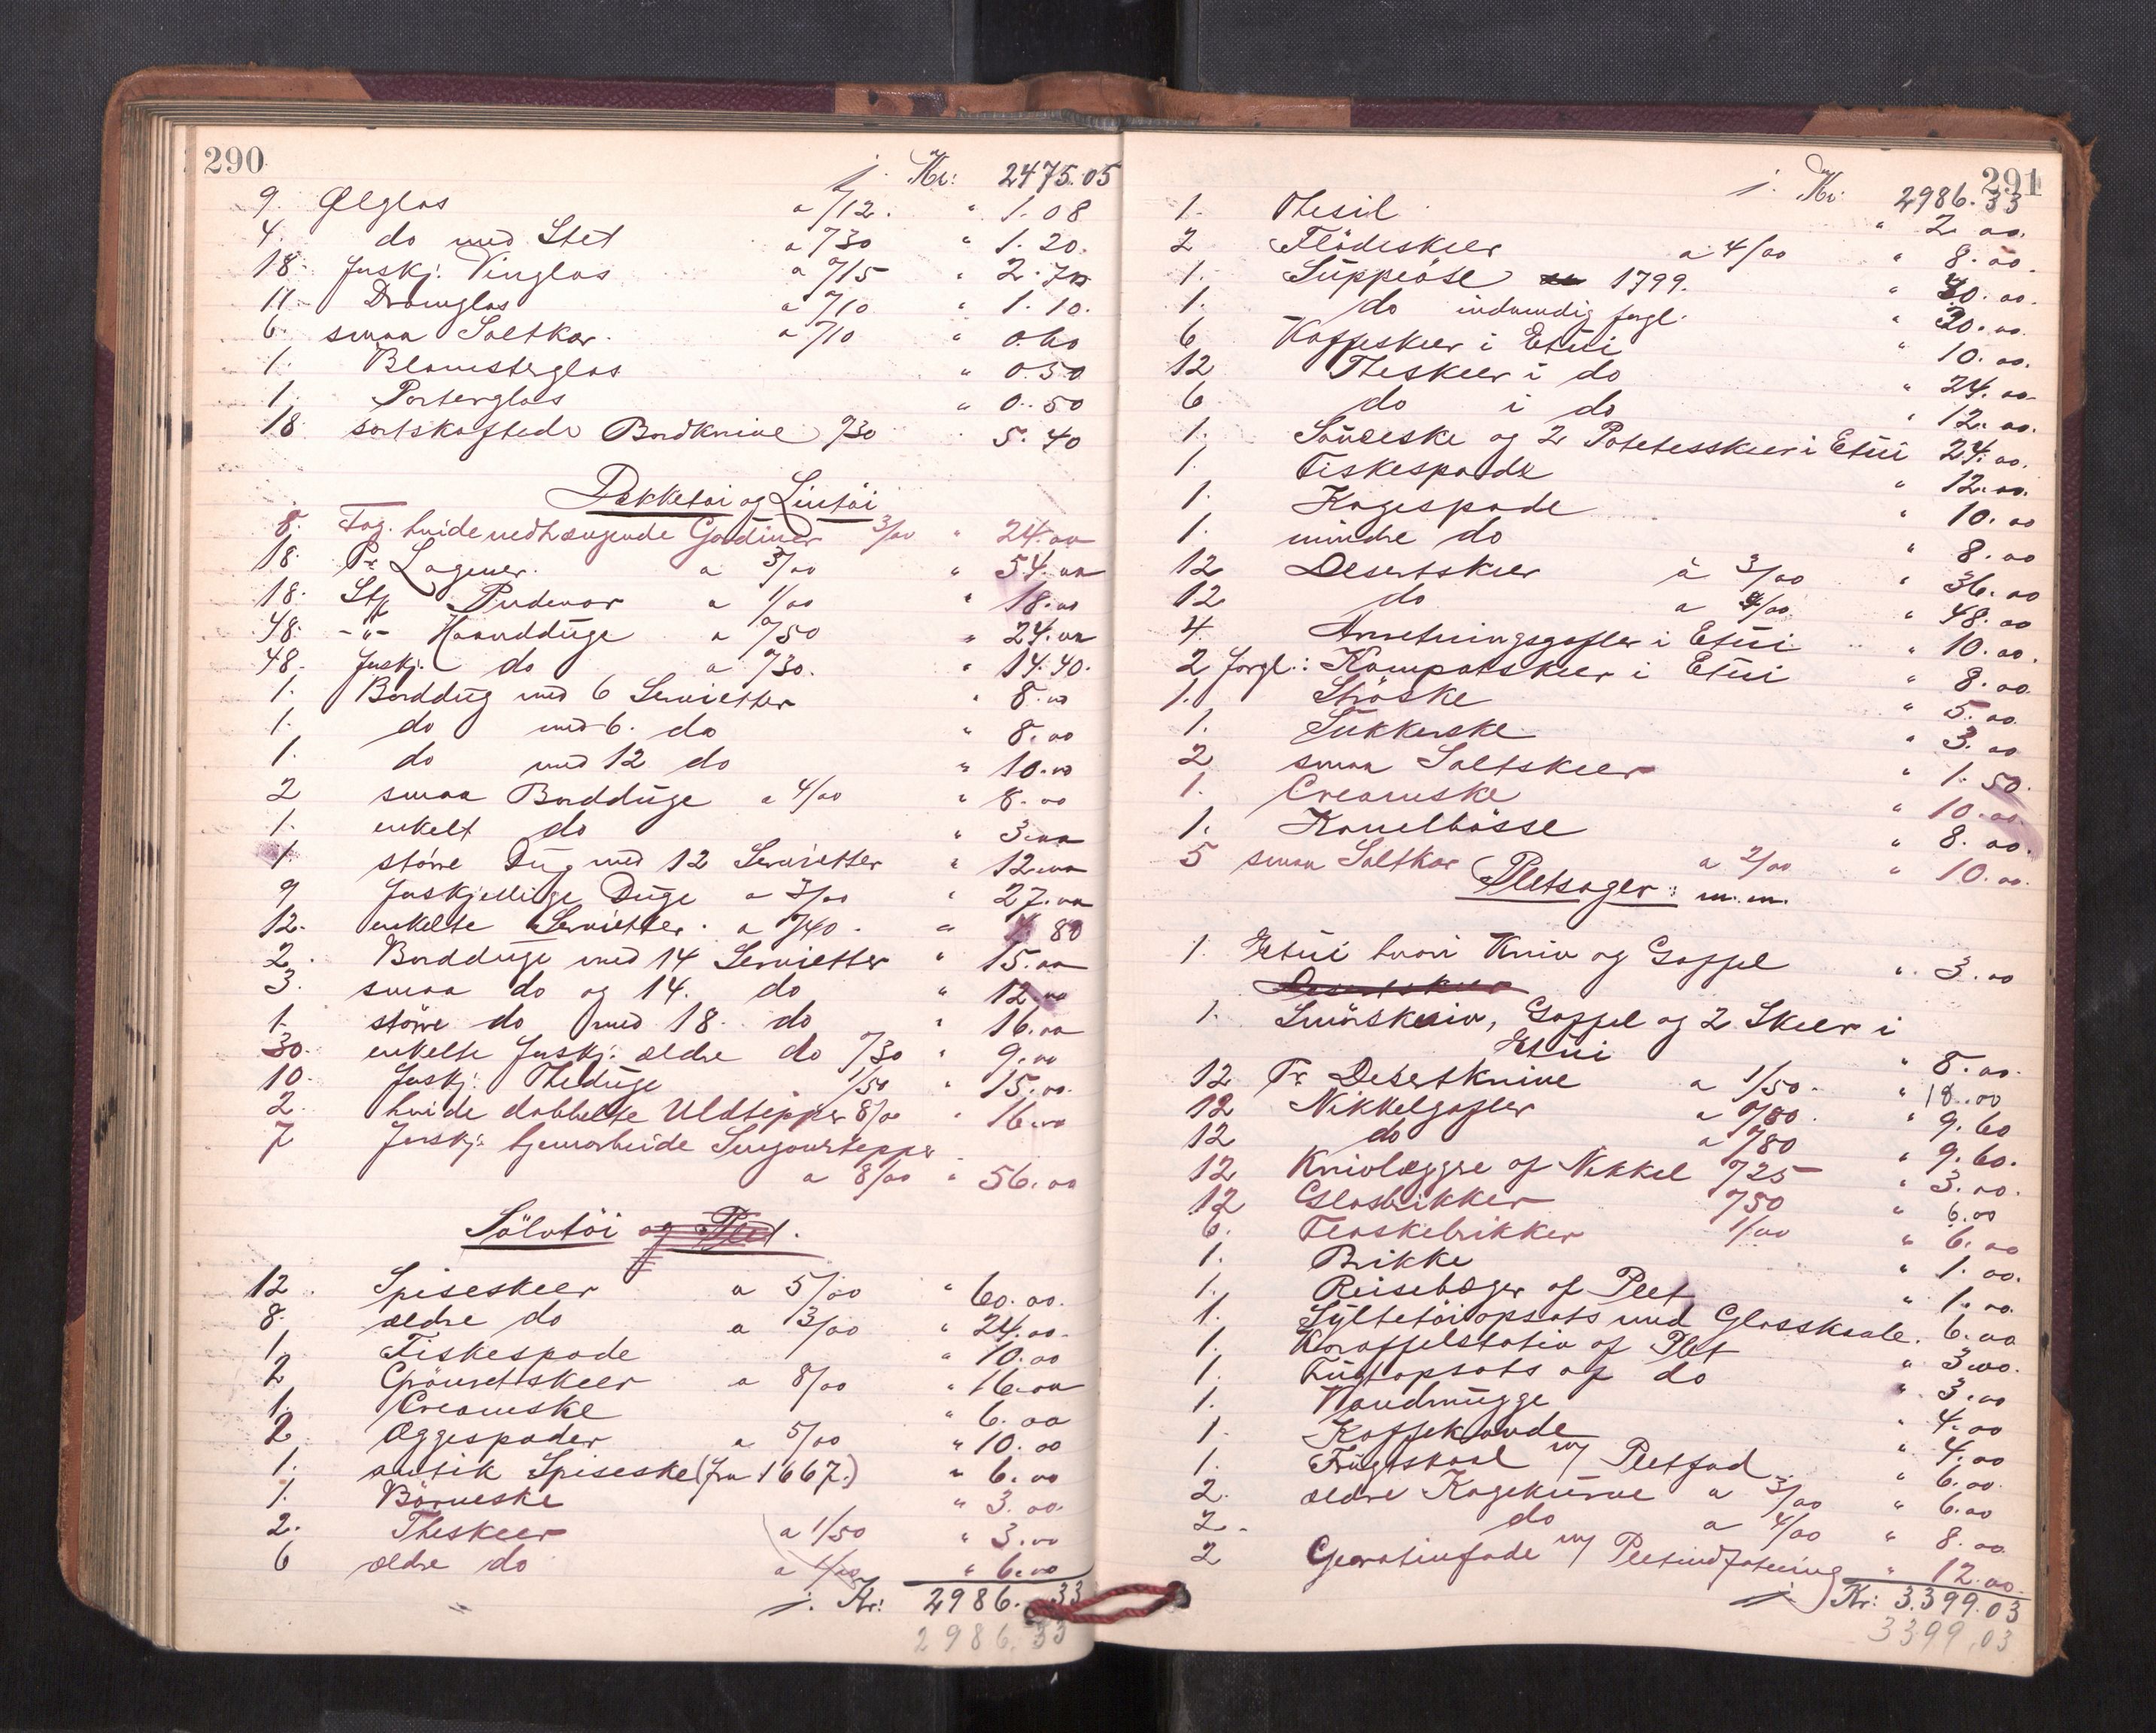 290
j. Kr: 2475.05
9. Ølglas a 0/12. " 1.08
4. do med Stet a 0/30 " 1.20.
18. forskj. Vinglas a 0/15 " 2.70
11. Dramglas a 0/10 " 1.10.
6. smaa Saltkar. a 0/10 " 0.60
1. Blomsterglas " 0.50
1. Porterglas " 0.50
18 sortskaftede Bordknive 0/30 " 5.40
Dækketøi og Lintøi
8. Fag. hvide nedhængende Gardiner 3/00 " 24.00
18. Pr Lagener. a 3/00 " 54.00
18. Stk Pudevar a 1/00 " 18.00
48. -"- Haandduge a 0/50 " 24.00
48. forskj. do a 0/30. " 14.40.
1. Borddug med 6 Servietter " 8.00
1. do med 6. do " 8.00
1. do med 12 do " 10.00
2 smaa Bordduge a 4/00 " 8.00
1. enkelt do " 3.00
1. større Dug med 12 Servietter " 12.00
9 forskjellige Duge a 3/00 " 27.00
12. enkelte Servietter. a 0/40. " 4.80
2. Bordduge med 14 Servietter " 15.00
3. smaa do og 14. do " 12.00
1. større do med 18. do " 16.00
30. enkelte forskj: ældre do 0/30 " 9.00
10. forskj: Theduge 1/50 " 15.00.
2. hvide dobbelte Uldtepper 8/00 " 16.00
7 forskj: hjemarbeide Sengetepper
a 8/00 " 56.00
Sölvtöi og Plet.
12. Spiseskeer a 5/00 " 60.00.
8. ældre do a 3/00 " 24.00.
1. Fiskespade " 10.00
2 Grönretskeer a 8/00 " 16.00
1. Creamske " 6.00
2 Æggespader a 5/00 " 10.00
1. antik Spiseske (fra 1667.) " 6.00
1. Börneske " 3.00.
2. Theskeer a 1/50 " 3.00
6 ældre do a 1/00 " 6.00
j. Kr: 2986.33
2986.33
291
j. Kr: 2986.33
1. Thesil " 2.00.
2 Flödeskeer a 4/00 " 8.00.
1. Suppeöse 1799. " 30.00.
1. do indvendig forgl. " 20.00.
6 Kaffeskeer i Etui " 10.00.
12 Theskeer i do " 24.00.
6 do i do " 12.00.
1. Sauceske og 2 Potetesskeer i Etui 24.00.
1. Fiskespade " 12.00.
1. Kagespade " 10.00
1. mindre do " 8.00
12 Desertskeer à 3/00 " 36.00
12 do a 4/00 " 48.00
4. Anretningsgafler i Etui " 10.00.
2 forgl.: Kompotskeer i Etui " 8.00.
1. Ströske " 5.00
1. Sukkerske " 3.00
2 smaa Saltskeer " 1.50.
1. Creamske " 10.00.
1. Kanelbösse " 8.00.
5 smaa Saltkar a 2/00 " 10.00.
Pletsager: m.m.
1. Etui hvori Kniv og Gaffel " 3.00
Desertskeer
1. Smörskniv, Gaffel og 2 Skeer i
Etui " 8.00.
12 Pr Desertknive a 1/50. " 18.00
12 Nikkelgafler a 0/80. " 9.60
12 do a 0/80 " 9.60.
12 Knivlæggre af Nikkel 0/25 " 3.00.
12 Glasbrikker 0/50 " 6.00
6. Flaskebrikker 1/00 " 6.00
1. Brikke " 1.00.
1. Reisebæger af Plet " 1.00.
1. Syltetöiopsats med Glasskaale. 6.00
1. Karaffelstativ af Plet " 3.00.
1. Frugtopsats af do " 3.00
1. Vandmugge " 4.00
1. Kaffekande " 4.00
1. Frugtskaal m/ Pletfad " 6.00.
2. ældre Kagekurve a 3/00 " 6.00
2. do a 4/00 " 8.00
2 Gratinfade m/ Pletindfatning " 12.00.
j. Kr: 3.399.03
3399,03